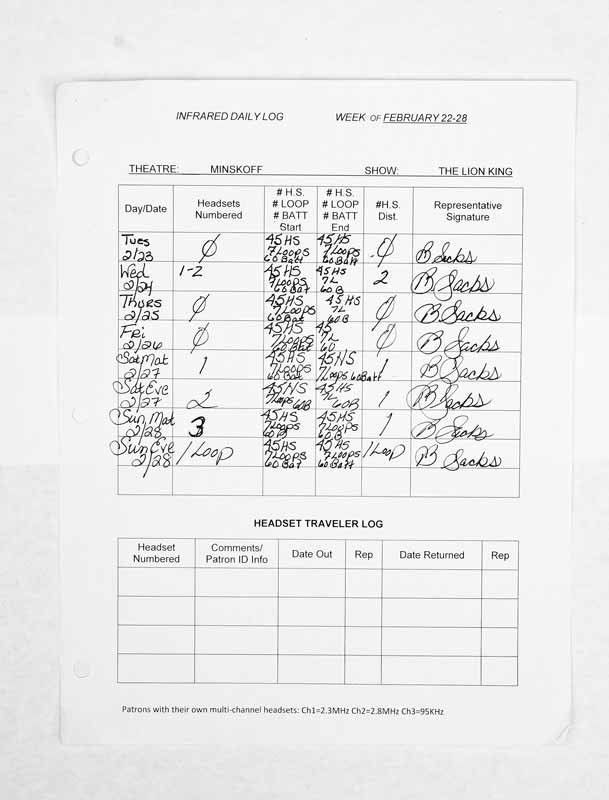 INFRARED DAILY LOG WEEK OF FEBRUARY 22-28
THEATRE: MINSKOFF SHOW: THE LION KING
Day/Date Headsets Numbered # H.S. # LOOP # BATT Start # H.S. # LOOP # BATT End #H.S. Dist. Representative Signature
Tues 2/23 Ø 45 HS 7 LOOPS 60 Batt 45 HS 7 LOOPS 60 Batt Ø B Sacks
Wed 2/24 1-2 45 HS 7 LOOPS 60 Bat 45 HS 7L 60B 2 B Sacks
Thurs 2/25 Ø 45 HS 7 LOOPS 60 Bat 45 HS 7L 60 B Ø B Sacks
Fri 2/26 Ø 45 HS 7 LOOPS 60 Bat 45 7L 60 Ø B Sacks
Sat Mat 2/27 1 45 HS 7 LOOPS 60 Bat 45 HS 7 Loops 60 Batt 1 B Sacks
Sat Eve 2/27 2 45 HS 7 Loops 60B 45 HS 7L 60B 1 B Sacks
Sun Mat 2/28 3 45 HS 7 LOOPS 60 B 45 HS 7 LOOPS 60 B 1 B Sacks
Sun Eve 2/28 1 LOOP 45 HS 7 LOOPS 60 Bat 45 HS 7 LOOPS 60 Batt 1 LOOP B Sacks
HEADSET TRAVELER LOG
Headset Numbered Comments/ Patron ID Info Date Out Rep Date Returned Rep
Patrons with their own multi-channel headsets: Ch1=2.3MHz Ch2=2.8MHz Ch3=95KHz